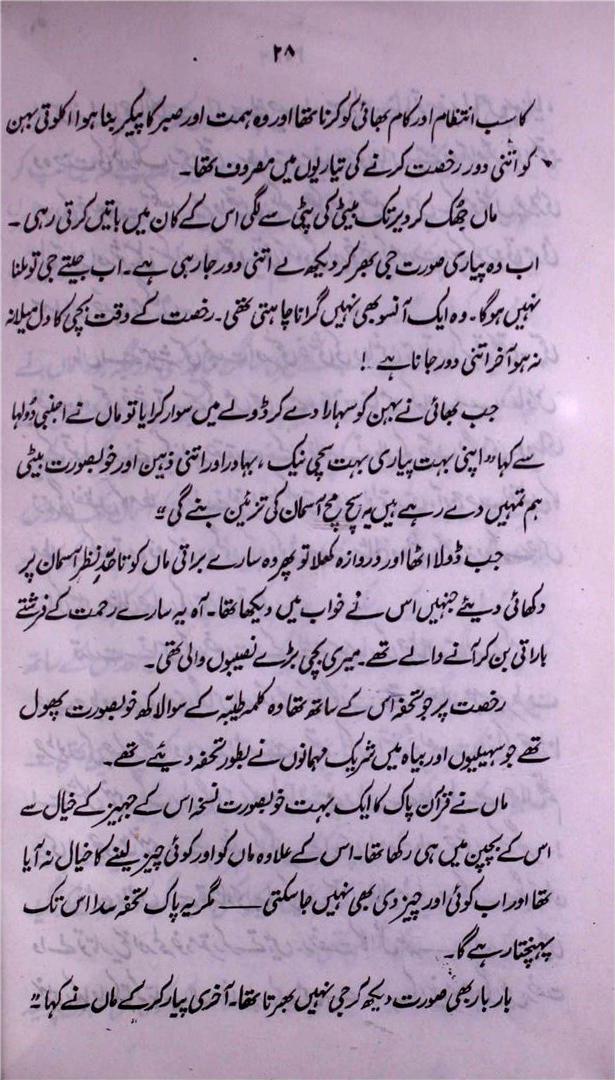 ۲۸
کا سب انتظام اور کام بھائی کو کرنا تھا اور وہ ہمت اور صبر کا پیکر بنا ہوا اکلوتی بہن
کو اتنی دور رخصت کرنے کی تیاریوں میں مصروف تھا۔
ماں جھک کر دیر تک بیٹی کی پٹی سے لگی اس کے کان میں باتیں کرتی رہی۔
اب وہ پیاری صورت جی بھر کر دیکھ لے اتنی دور جا رہی ہے۔ اب جیتے جی تو ملنا
نہیں ہوگا۔ وہ ایک آنسو بھی نہیں گرانا چاہتی تھی۔ رخصت کے وقت بچی کا دل میلا نہ
نہ ہو آخر اتنی دور جانا ہے !
جب بھائی نے بہن کو سہارا دے کر ڈولے میں سوار کرایا تو ماں نے اجنبی دُولہا
سے کہا “ اپنی بہت پیاری بہت سچی نیک ، بہادر اور اتنی ذہین اور خوبصورت بیٹی
ہم تمہیں دے رہے ہیں یہ سچ مچ آسمان کی تزئین بنے گی ”
جب ڈولا اٹھا اور دروازہ کھلا تو پھر وہ سارے براتی ماں کو تاحدِ نظر آسمان پر
دکھائی دیئے جنہیں اس نے خواب میں دیکھا تھا۔ آہ یہ سارے رحمت کے فرشتے
باراتی بن کر آنے والے تھے۔ میری بچی بڑے نصیبوں والی تھی۔
رخصت پر جو تحفہ اس کے ساتھ تھا وہ کلمہ طیبّہ کے سوا لاکھ خوبصورت پھول
تھے جو سہیلیوں اور بیاہ میں شریک مہمانوں نے بطور تحفہ دیئے تھے۔
ماں نے قرآن پاک کا ایک بہت خوبصورت نسخہ اس کے جہیز کے خیال سے
اس کے بچپن میں ہی رکھا تھا۔ اس کے علاوہ ماں کو اور کوئی چیز لینے کا خیال نہ آیا
تھا اور اب کوئی اور چیز دی بھی نہیں جا سکتی —— مگر یہ پاک تحفہ سدا اس تک
پہنچتا رہے گا۔
بار بار بھی صورت دیکھ کر جی نہیں بھرتا تھا۔ آخری پیار کر کے ماں نے کہا۔ “